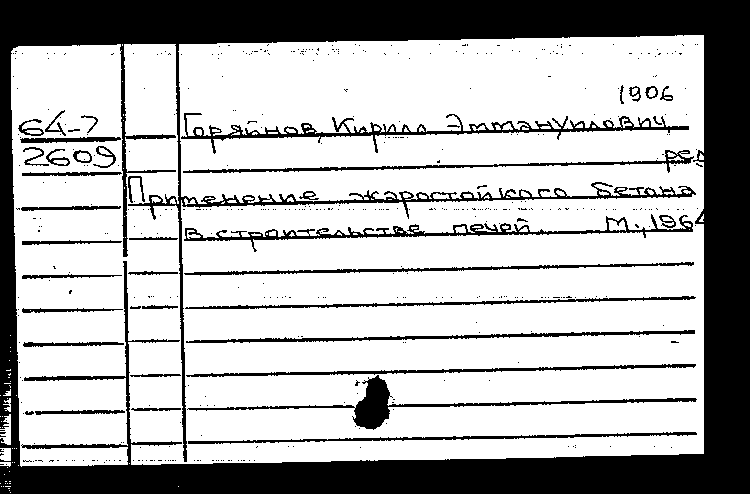 1906
64-7 Горяйнов, Кирилл Эммануилович,
2609 ред
Применение жаростойкого бетона
в строительстве печей. М., 1964